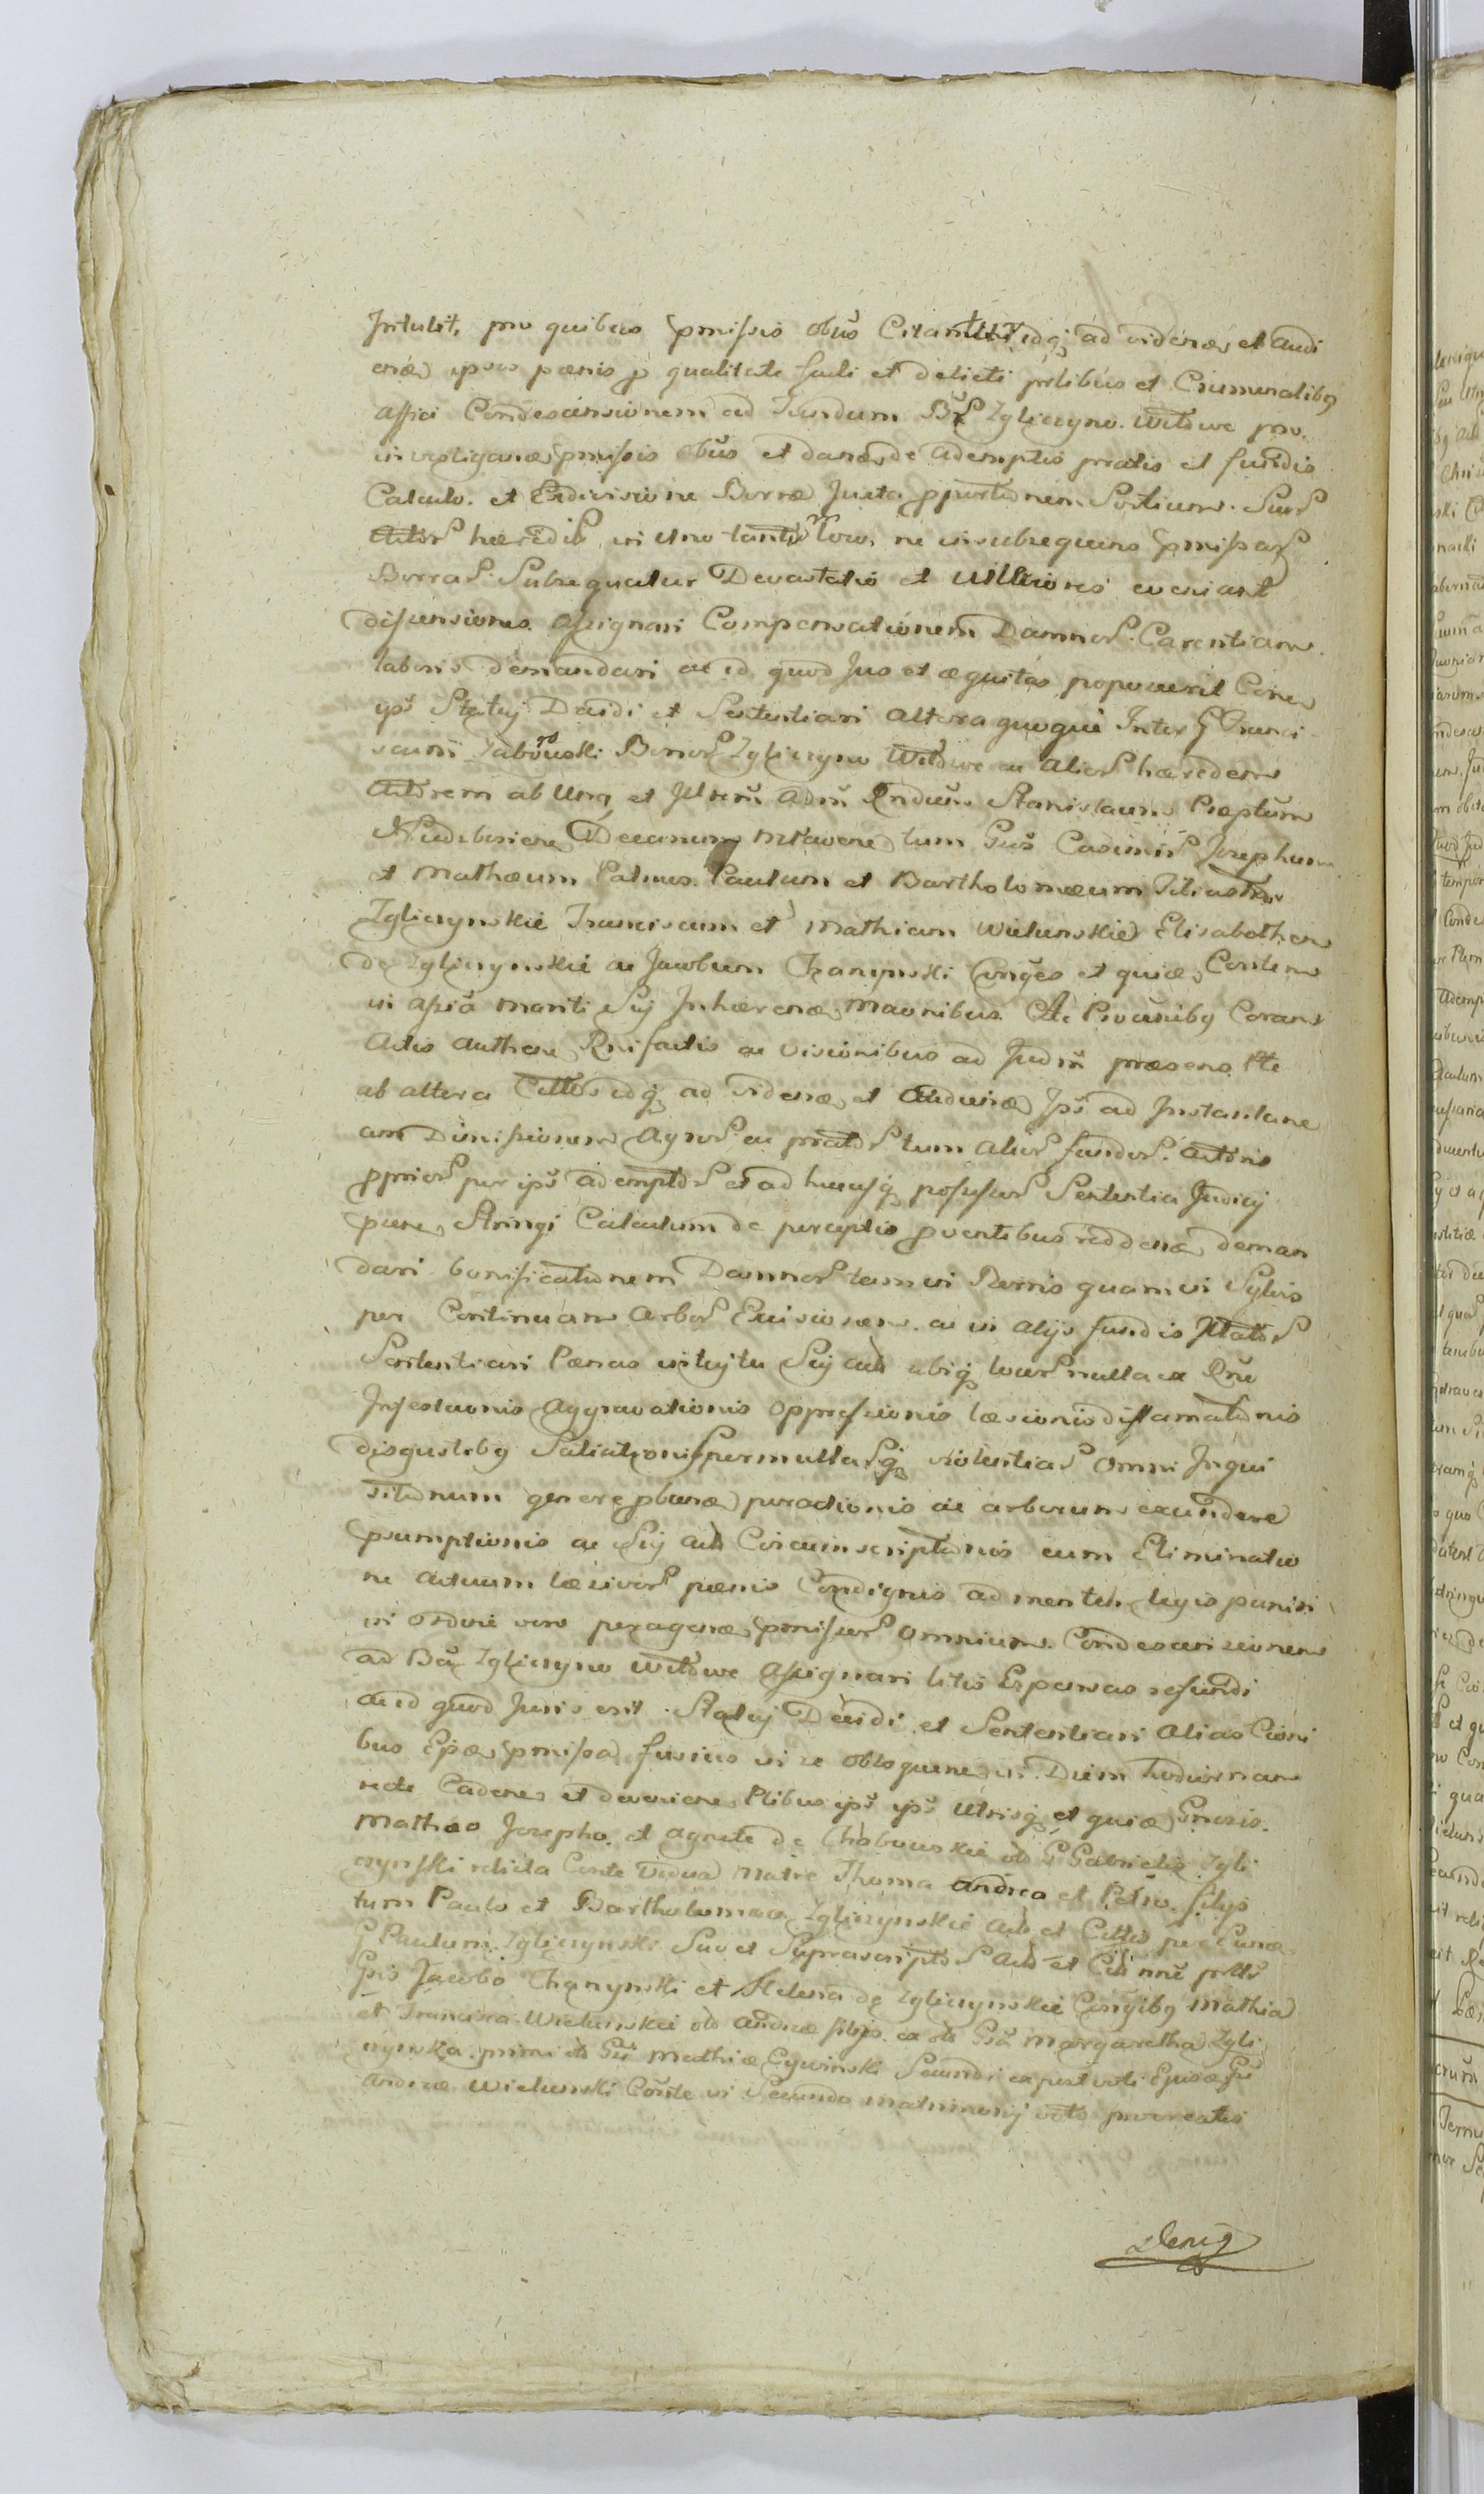 Intulit, pro quibus pmissis obus Citantur idq ad videnæ et audi
enæ ipsos pænis p qualitate facti et delicti prlibus et Criminalibq
affici Condescensionem ad fundum Br Zgliczyno Witowe pro
investiganæ pmissis obus et danæ de ademptis pratis et fundis
Calculo et Exdivisione Borræ Juxta pportionem Sortium Suar
Actor hæredib in uno tantu loco, ne in subsequens pmissar
Borrar Subsequatur Devastatio et Ulteriores eveniant
dissensiones assignari Compensationem Damnor Carentiam
laboris demandari ac id quod Jus et æquitas poposcerit Cone
ips Statuj Decidi et Sententiari altera quoque Inter G Franci
scum Jabowski Bonor Zgliczyno Witowe ac alior hæredem
Actorem ab Una et Illrem Adm Rndum Stanislaum Præptum
Decanum tum Gus Casimir Josephum
et Mathæum Patruos Paulum et Bartholomæum filiastros
Zgliczynskie Franciscum et Mathiam Wielunskie Elisabetham
de Zgliczynskie ac Jacobum Chanynski Conges et quiæ Contem
in assia mariti Sui Inhærenæ Maonibus Ac Procenibq Coram
Actis authen Rnifactis ac visionibus ad Judm præsens Pte
ab altera Cittos idq ad videnæ et audienæ Ips ad Instantane
am Dimissionem Agror ac prator tum alior fundor Actoris
pprior per ips ademptor et ad hucusq possessor Sententia Judicij
ptne Stringi Calculum de perceptis pventibus reddenæ deman
dari bonificationem Damnor tam in Borris quam in Sylvis
per Continuam arbor Excisionem ac in alijs fundis Illator
Sententiari Pænas intuitu Sui act ubiq locor nulla ex Rne
Infestaonis Aggravationis Oppressionis læsionis diffamationis
disgustibq Satiationis permultarq violentiar Omni Inqui
sitionum genere pbenæ peractionis ac arborum excindere
psumptionis ac Sui act Circumscriptionis cum Eliminatio
ne actuum læsivor pænis Condignis ad mentem legis puniri
in ordine vero peragenæ pmissor omnium Condescensionem
ad Ba Zgliczyno Witowe Assignari litis Expensas refundi
ac id quod Juris erit Statuj Decidi et Sententiari alias Cioni
bus Epæ pmissa fusius in se obloquene in Diem hodiernam
recte Cadene et deveniene Ptibus ips ips Utrisq et quiæ Gnosis
Mathæo Josepho et Agnete de Chabowskie olo G Gabrielis Zgli
czynski relicta Conte Vidua Matre Thoma Andrea et Petro filijs
tum Paulo et Bartholomæo Zgliczynskie Act et Cittis per Cunæ
G Paulum Zgliczynski Suo et Suprascriptor Act et Citt nne prlts
Gsis Jacobo Chanynski et Helena de Zgliczynskie Congibq Mathia
et Francisca Wielunskie olo Andreæ filijs ex olo Gsa Margaretha Zgli
czynska primi olo Gsi Mathiæ Cywinski Secundi ex post voti Ejusæ Gsi
Andreæ Wielunski Conte in Secundo matrimonij voto procreatis
Deniq